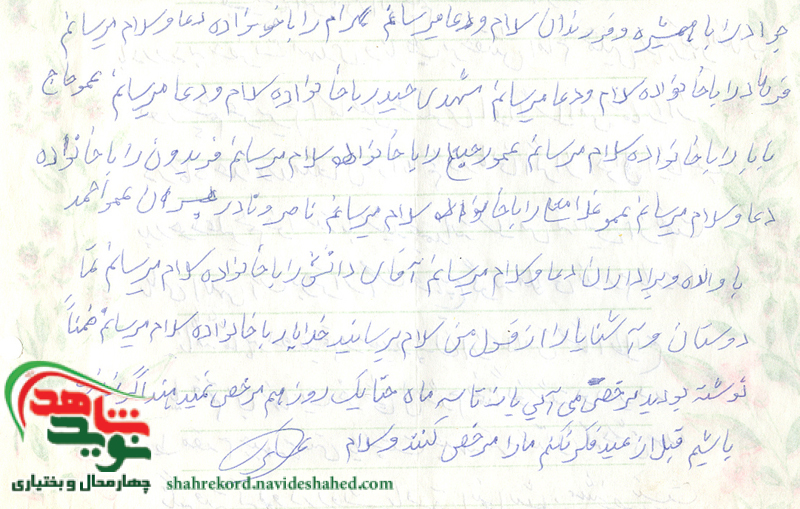 جواد را با همشیره و فرزندان سلام و دعا میرسانم بهرام را با خانواده دعا و سلام میرسانم
فرهاد را با خانواده سلام و دعا میرسانم مشهدی حیدر با خانواده سلام و دعا میرسانم عمو حاج
بابا را با خانواده سلام میرسانم عمو رجبعلی را با خانواده سلام میرسانم فریدون را با خانواده
دعا و سلام میرسانم عمو غلامعلی را با خانواده سلام میرسانم ناصر و نادر پسران عمو احمد
با والده و برادران دعا و سلام میرسانم آقای دانش را با خانواده سلام میرسانم تمام
دوستان و آشنایا را از قول من سلام برسانید خدایار با خانواده سلام میرسانم ضمناً
نوشته بودید مرخصی می آیی یا نه تا سه ماه حتا یک روز هم مرخصی نمیدهند اگر
باشیم قبل از عید فکر نکنم ما را مرخص کنند وسلام
نوید شاهد
چهارمحال و بختیاری
shahrekord.navideshahed.com